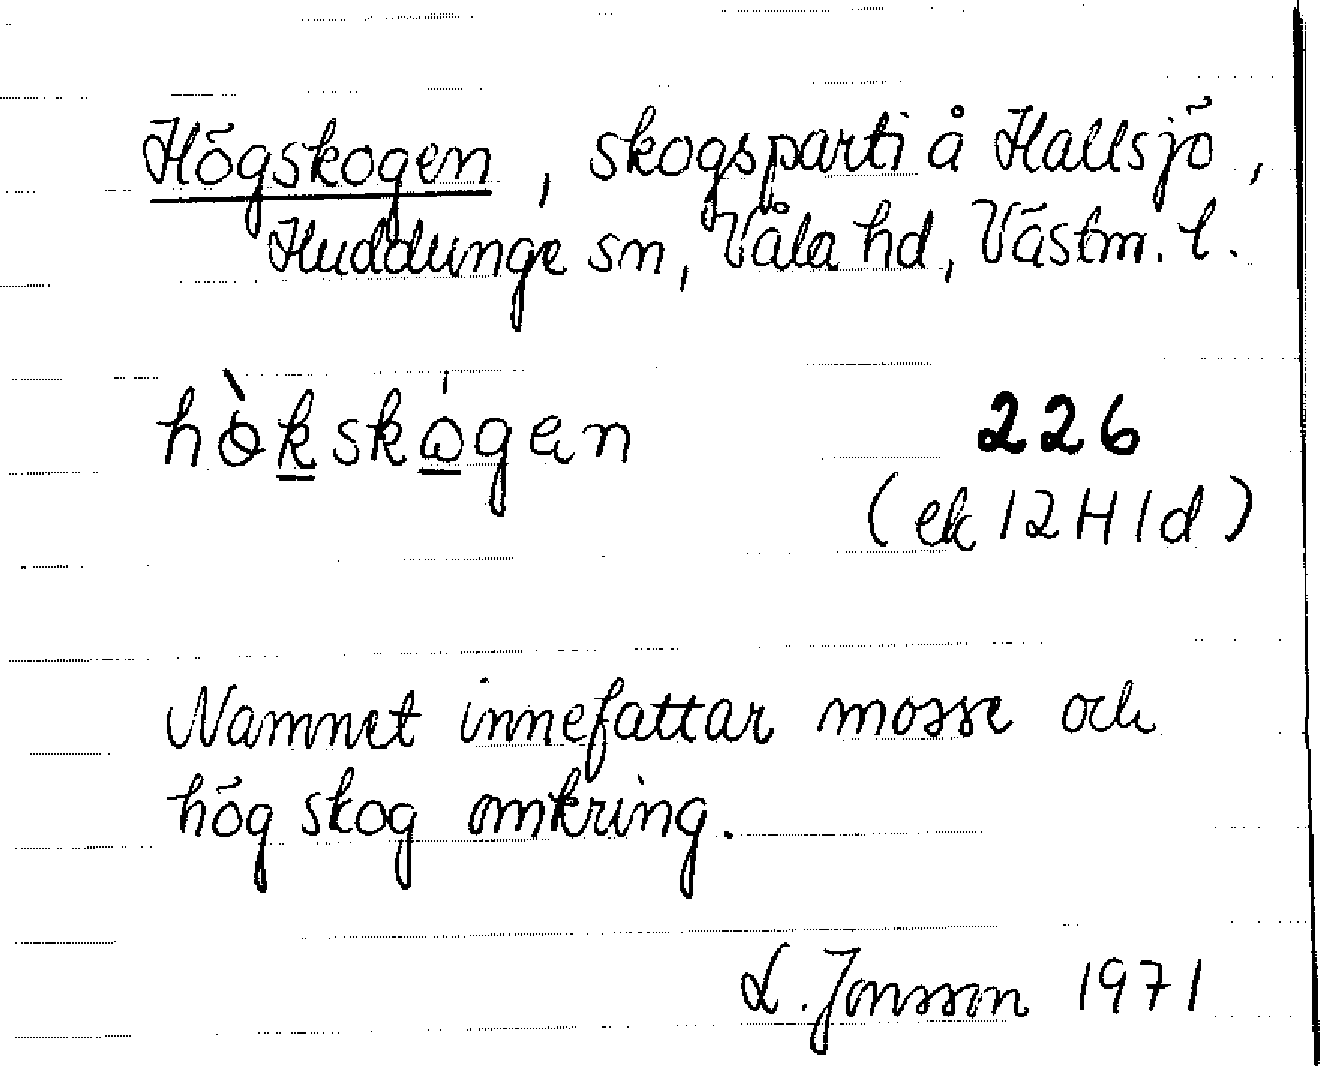 Högskogen, skogsparti å Hallsjö,
Huddunge sn, Våla hd, Västm. l.
hòkskógen 226
(ek 12H1d)
Namnet innefattar mosse och
hög skog omkring.
L. Jonsson 1971